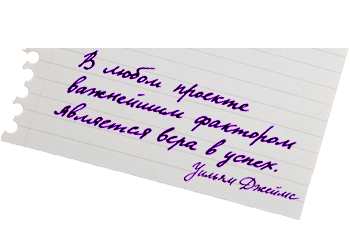 В любом проекте
важнейшим фактором
является вера в успех.
Уильям Джеймс